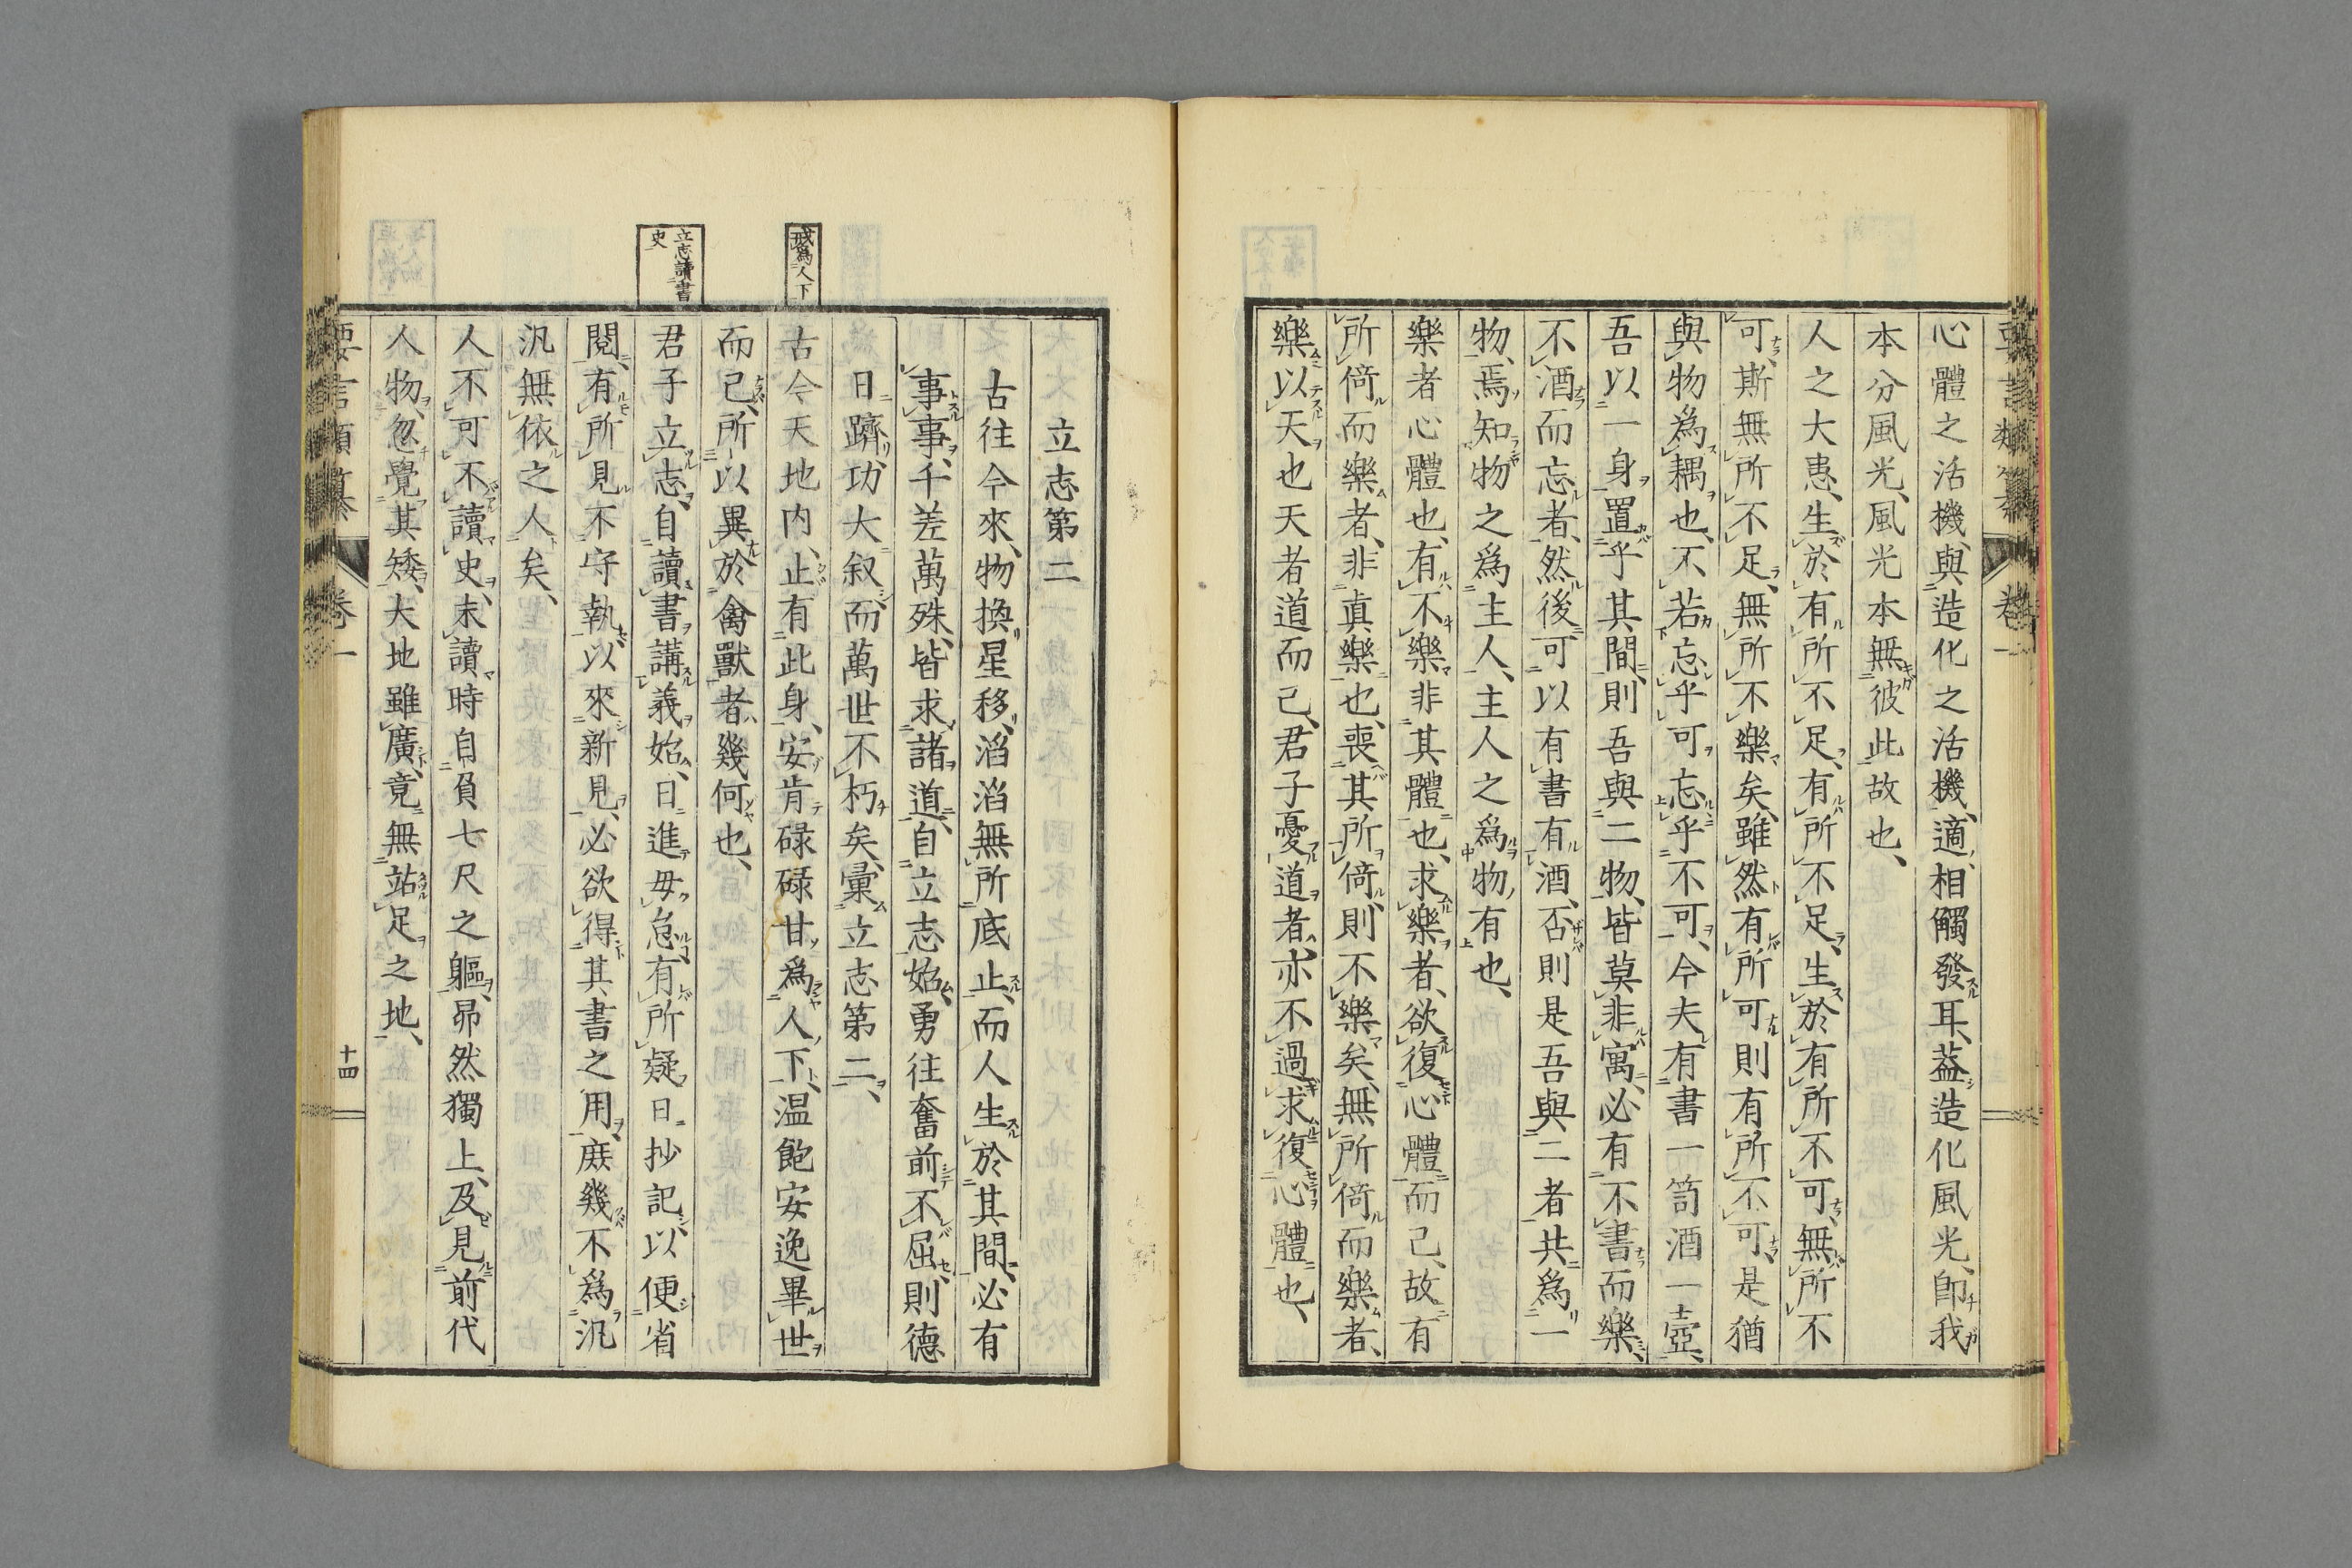 要言類纂 卷一
心體之活機、與造化之活機、適相觸發耳、益造化風光、卽我
本分風光、風光本無彼此故也、
人之大患、生於有所不足、有所不足、生於有所不可、無所不
可、斯無所不足、無所不樂矣、雖然有所可則有所不可、是猶
與物爲耦也、不若忘乎可忘乎不可、今夫有書一笥酒一壺、
吾以一身置乎其間、則吾與二物、皆莫非寓、必有不書而樂、
不酒而忘者、然後可以有書有酒、否則是吾與二者共爲一
物、焉知物之爲主人、主人之爲物有也、
樂者心體也、有不樂非其體也、求樂者、欲復心體而已、故有
所倚而樂者、非眞樂也、喪其所倚、則不樂矣、無所倚而樂者、
樂以天也天者道而已、君子憂道者、亦不過求復心體也、
立志第二
古往今來、物換星移、滔滔無所底止、而人生於其間、必有
事事、千差萬殊、皆求諸道、自立志始、勇往奮前、不屈則德
日躋、功大叙、而萬世不朽矣、彙立志第二、
戒爲人下
古今天地内、止有此身、安肯碌碌甘爲人下、温飽安逸畢世
而已、所以異於禽獸者、幾何也、
立志讀書
史
君子立志、自讀書講義始、日進毋怠、有所疑日抄記、以便省
閲、有所見不守執、以來新見、必欲得其書之用、庶幾不爲汎
汎無依之人矣、
人不可不讀史、未讀時自負七尺之軀、昂然獨上、及見前代
人物、忽覺其矮、大地雖廣、竟無站足之地、
要言類纂 卷一 十四